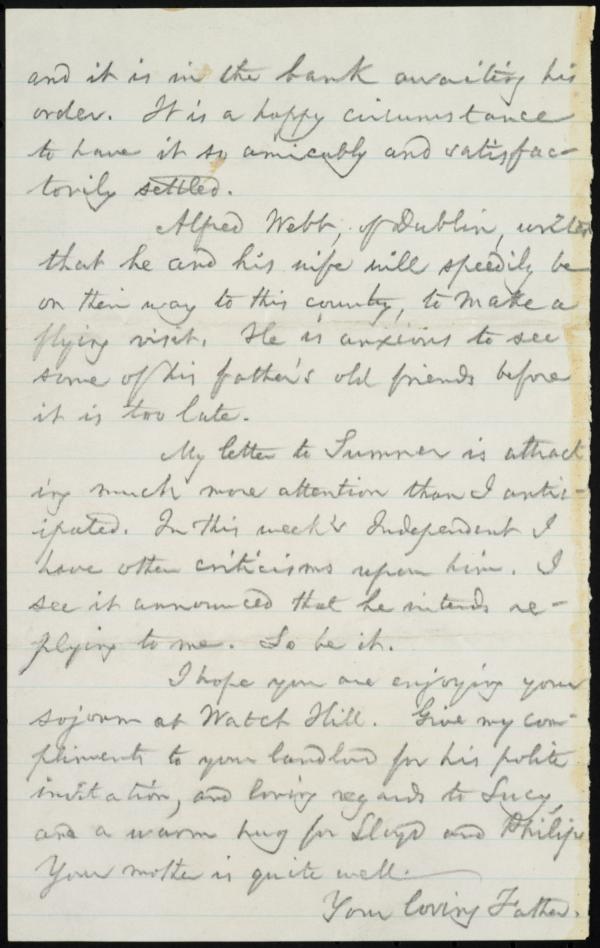 and it is in the bank awaiting his
order. It is a happy circumstance
to have it so amicably and satisfac-
torily settled.
Alfred Webb, of Dublin, writes
that he and his wife will speedily be
on their way to this country, to make a
flying visit. He is anxious to see
some of his father's old friends before
it is too late.
My letter to Sumner is attract
ing much more attention than I antic-
ipated. In this week's Independent I
have other criticisms upon him. I
see it announced that he intends re-
plying to me. So be it.
I hope you are enjoying your
sojourn at Watch Hill. Give my com-
pliments to your landlord for his polite
invitation, and loving regards to Lucy,
and a warm hug for Lloyd and Philip.
Your mother is quite well.
Your loving Father.